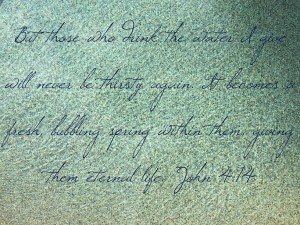 But those who drink the water I give
will never be thirsty again. It becomes a
fresh, bubbling spring within them, giving
them eternal life. John 4:14